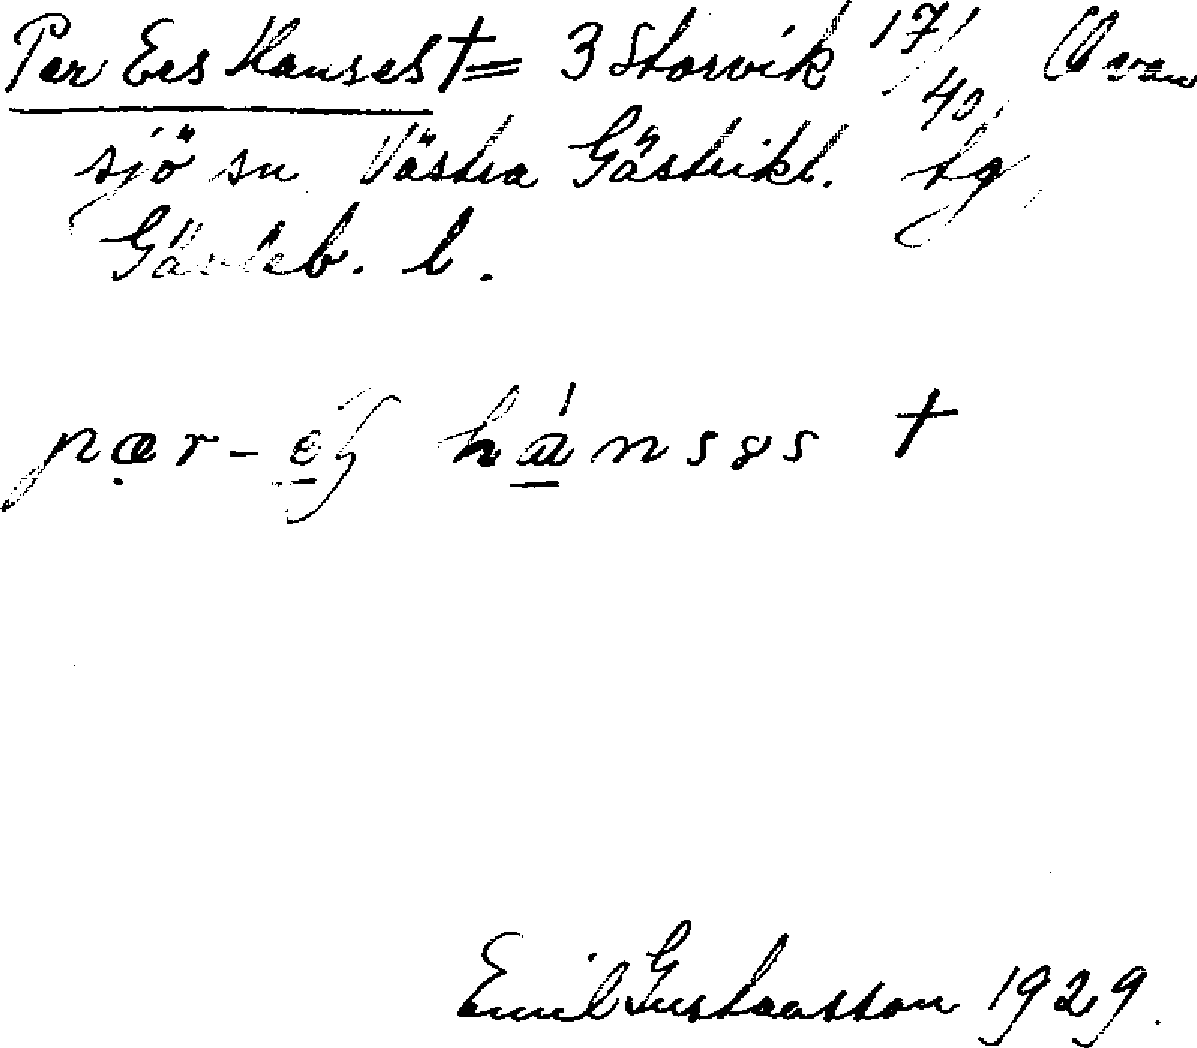 Per Ers Hanses † = 3 Storvik 17/40, Ovan
sjö sn Västra Gästrikl. tg
Gävleb. l.
hánsəs †
Emil Gustavsson 1929.